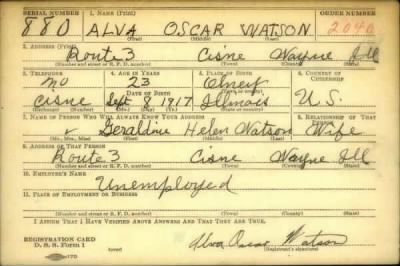 SERIAL NUMBER 1. NAME (Print) ORDER NUMBER
880 ALVA OSCAR WATSON 2040
(First) (Middle) (Last)
2. ADDRESS (Print)
Route 3 Cisne Wayne Ill
(Number and street or R. F. D. number) (Town) (County) (State)
3. TELEPHONE 4. AGE IN YEARS 5. PLACE OF BIRTH 6. COUNTRY OF CITIZENSHIP
no 23 Olney
DATE OF BIRTH
Cisne Sept 8 1917 Illinois U.S.
(Exchange) (Number) (Mo.) (Day) (Yr.) (State or country)
7. NAME OF PERSON WHO WILL ALWAYS KNOW YOUR ADDRESS 8. RELATIONSHIP OF THAT PERSON
Geraldine Helen Watson Wife
(Mr., Mrs., Miss) (First) (Middle) (Last)
9. ADDRESS OF THAT PERSON
Route 3 Cisne Wayne Ill
(Number and street or R. F. D. number) (Town) (County) (State)
10. EMPLOYER'S NAME
Unemployed
11. PLACE OF EMPLOYMENT OR BUSINESS
(Number and street or R. F. D. number) (Town) (County) (State)
I AFFIRM THAT I HAVE VERIFIED ABOVE ANSWERS AND THAT THEY ARE TRUE.
REGISTRATION CARD
D. S. S. Form 1
Alva Oscar Watson
(Registrant's signature)